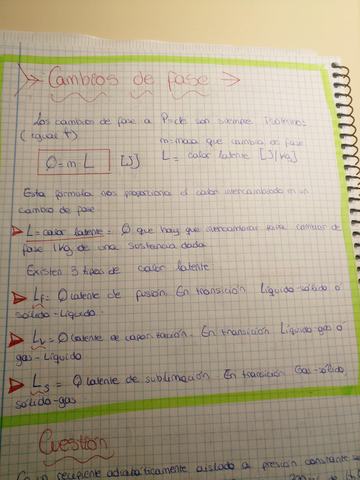 Cambios de fase
Los cambios de fase a P=cte son siempre isotermos
(igual T)
m=masa que cambia de fase
Q=m·L [J] L= calor latente [J/kg]
Esta formula nos proporciona el calor intercambiado en un
cambio de fase
L=calor latente = Q que hay que intercambiar para cambiar de
fase 1kg de una sustancia dada
Existen 3 tipos de calor latente
Lf= Q latente de fusión. En transición líquido-sólido o
sólido-líquido.
Lv= Q latente de vaporización. En transición líquido-gas o
gas-líquido
Ls = Q latente de sublimación En transición Gas-sólido,
sólido-gas
Cuestión
recipiente adiabáticamente aislado a presión constante